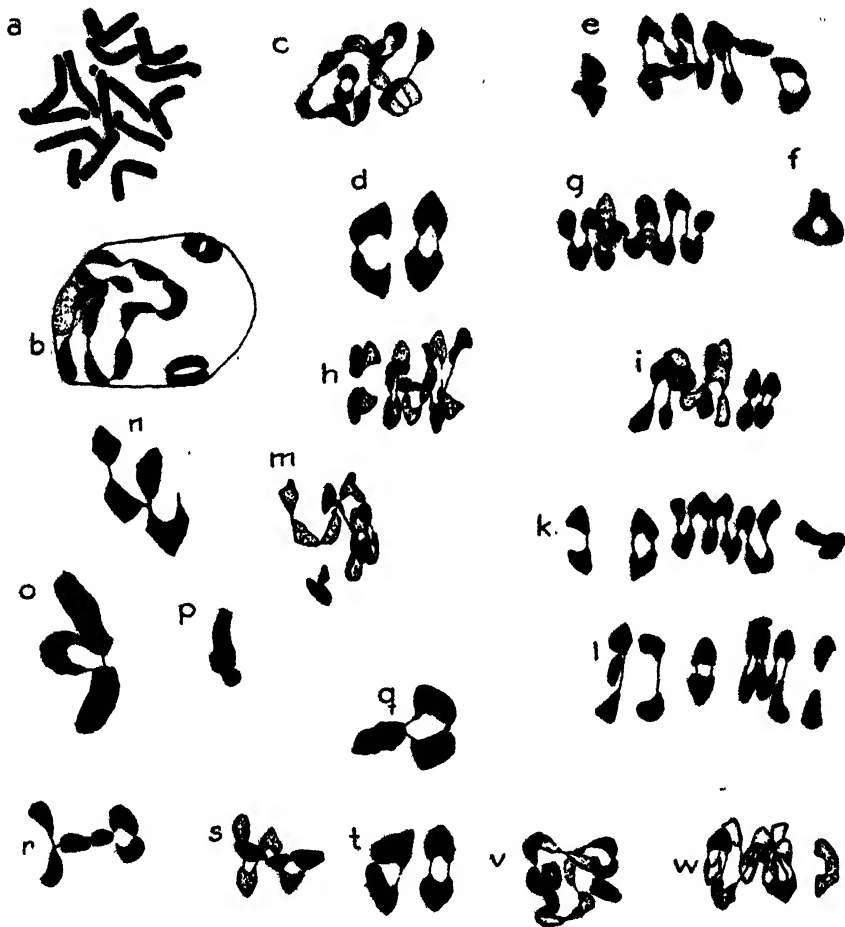 a
c
e
d
g
f
b
h
i
n
m
k.
o
p
l
q
r
s
t
v
w